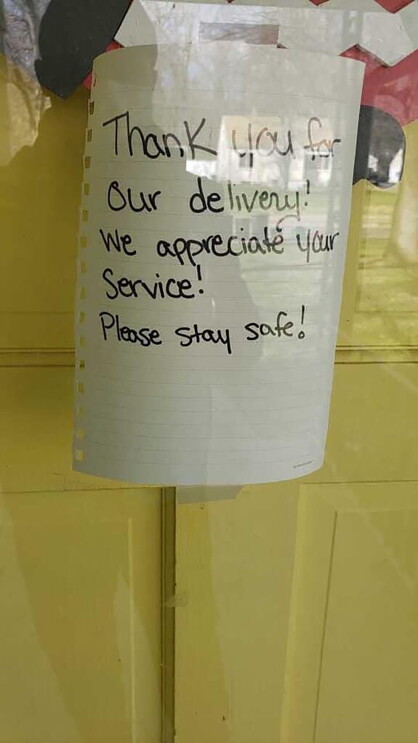 Thank you for
our delivery!
We appreciate your
Service!
Please stay safe!